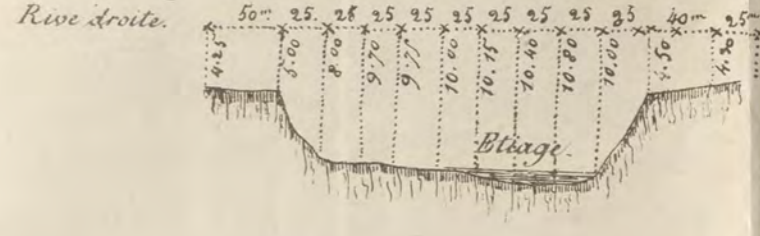 Rive droite.
50m. 25. 25 25 25 25 25 25 25 25 40m 25m
4.25 5.00 8.00 9.70 9.75 10.00 10.15 10.40 10.80 10.00 4.50 4.30
Etiage.